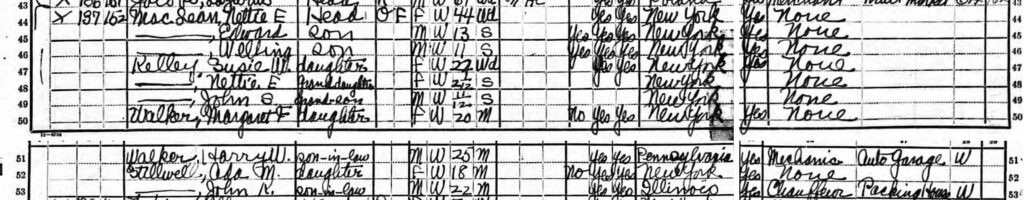 43
44 X 187 162 MacLean, Nettie E Head O F F W 44 Wd Yes Yes New York Yes None 44
45 ———, Edward son M W 13 S Yes Yes Yes New York Yes None 45
46 ———, son M W 11 S Yes Yes Yes New York Yes None 46
47 Kelley, Susie W. daughter F W 22 Wd Yes Yes New York Yes None 47
48 ———, Nettie E granddaughter F W S New York None 48
49 ———, John S. grand-son M W 11/12 S New York None 49
50 Walker, Margaret F daughter F W 20 M no Yes Yes New York Yes None 50
51 Walker, Harry W. son-in-law M W 25 M Yes Yes Pennsylvania Yes Mechanic Auto Garage W 51
52 Stillwell, Ada M. daughter F W 18 M no Yes Yes New York Yes None 52
53 ———, John R. son-in-law M W 22 M Yes Yes Illinois Yes Chauffeur Packing House W 53